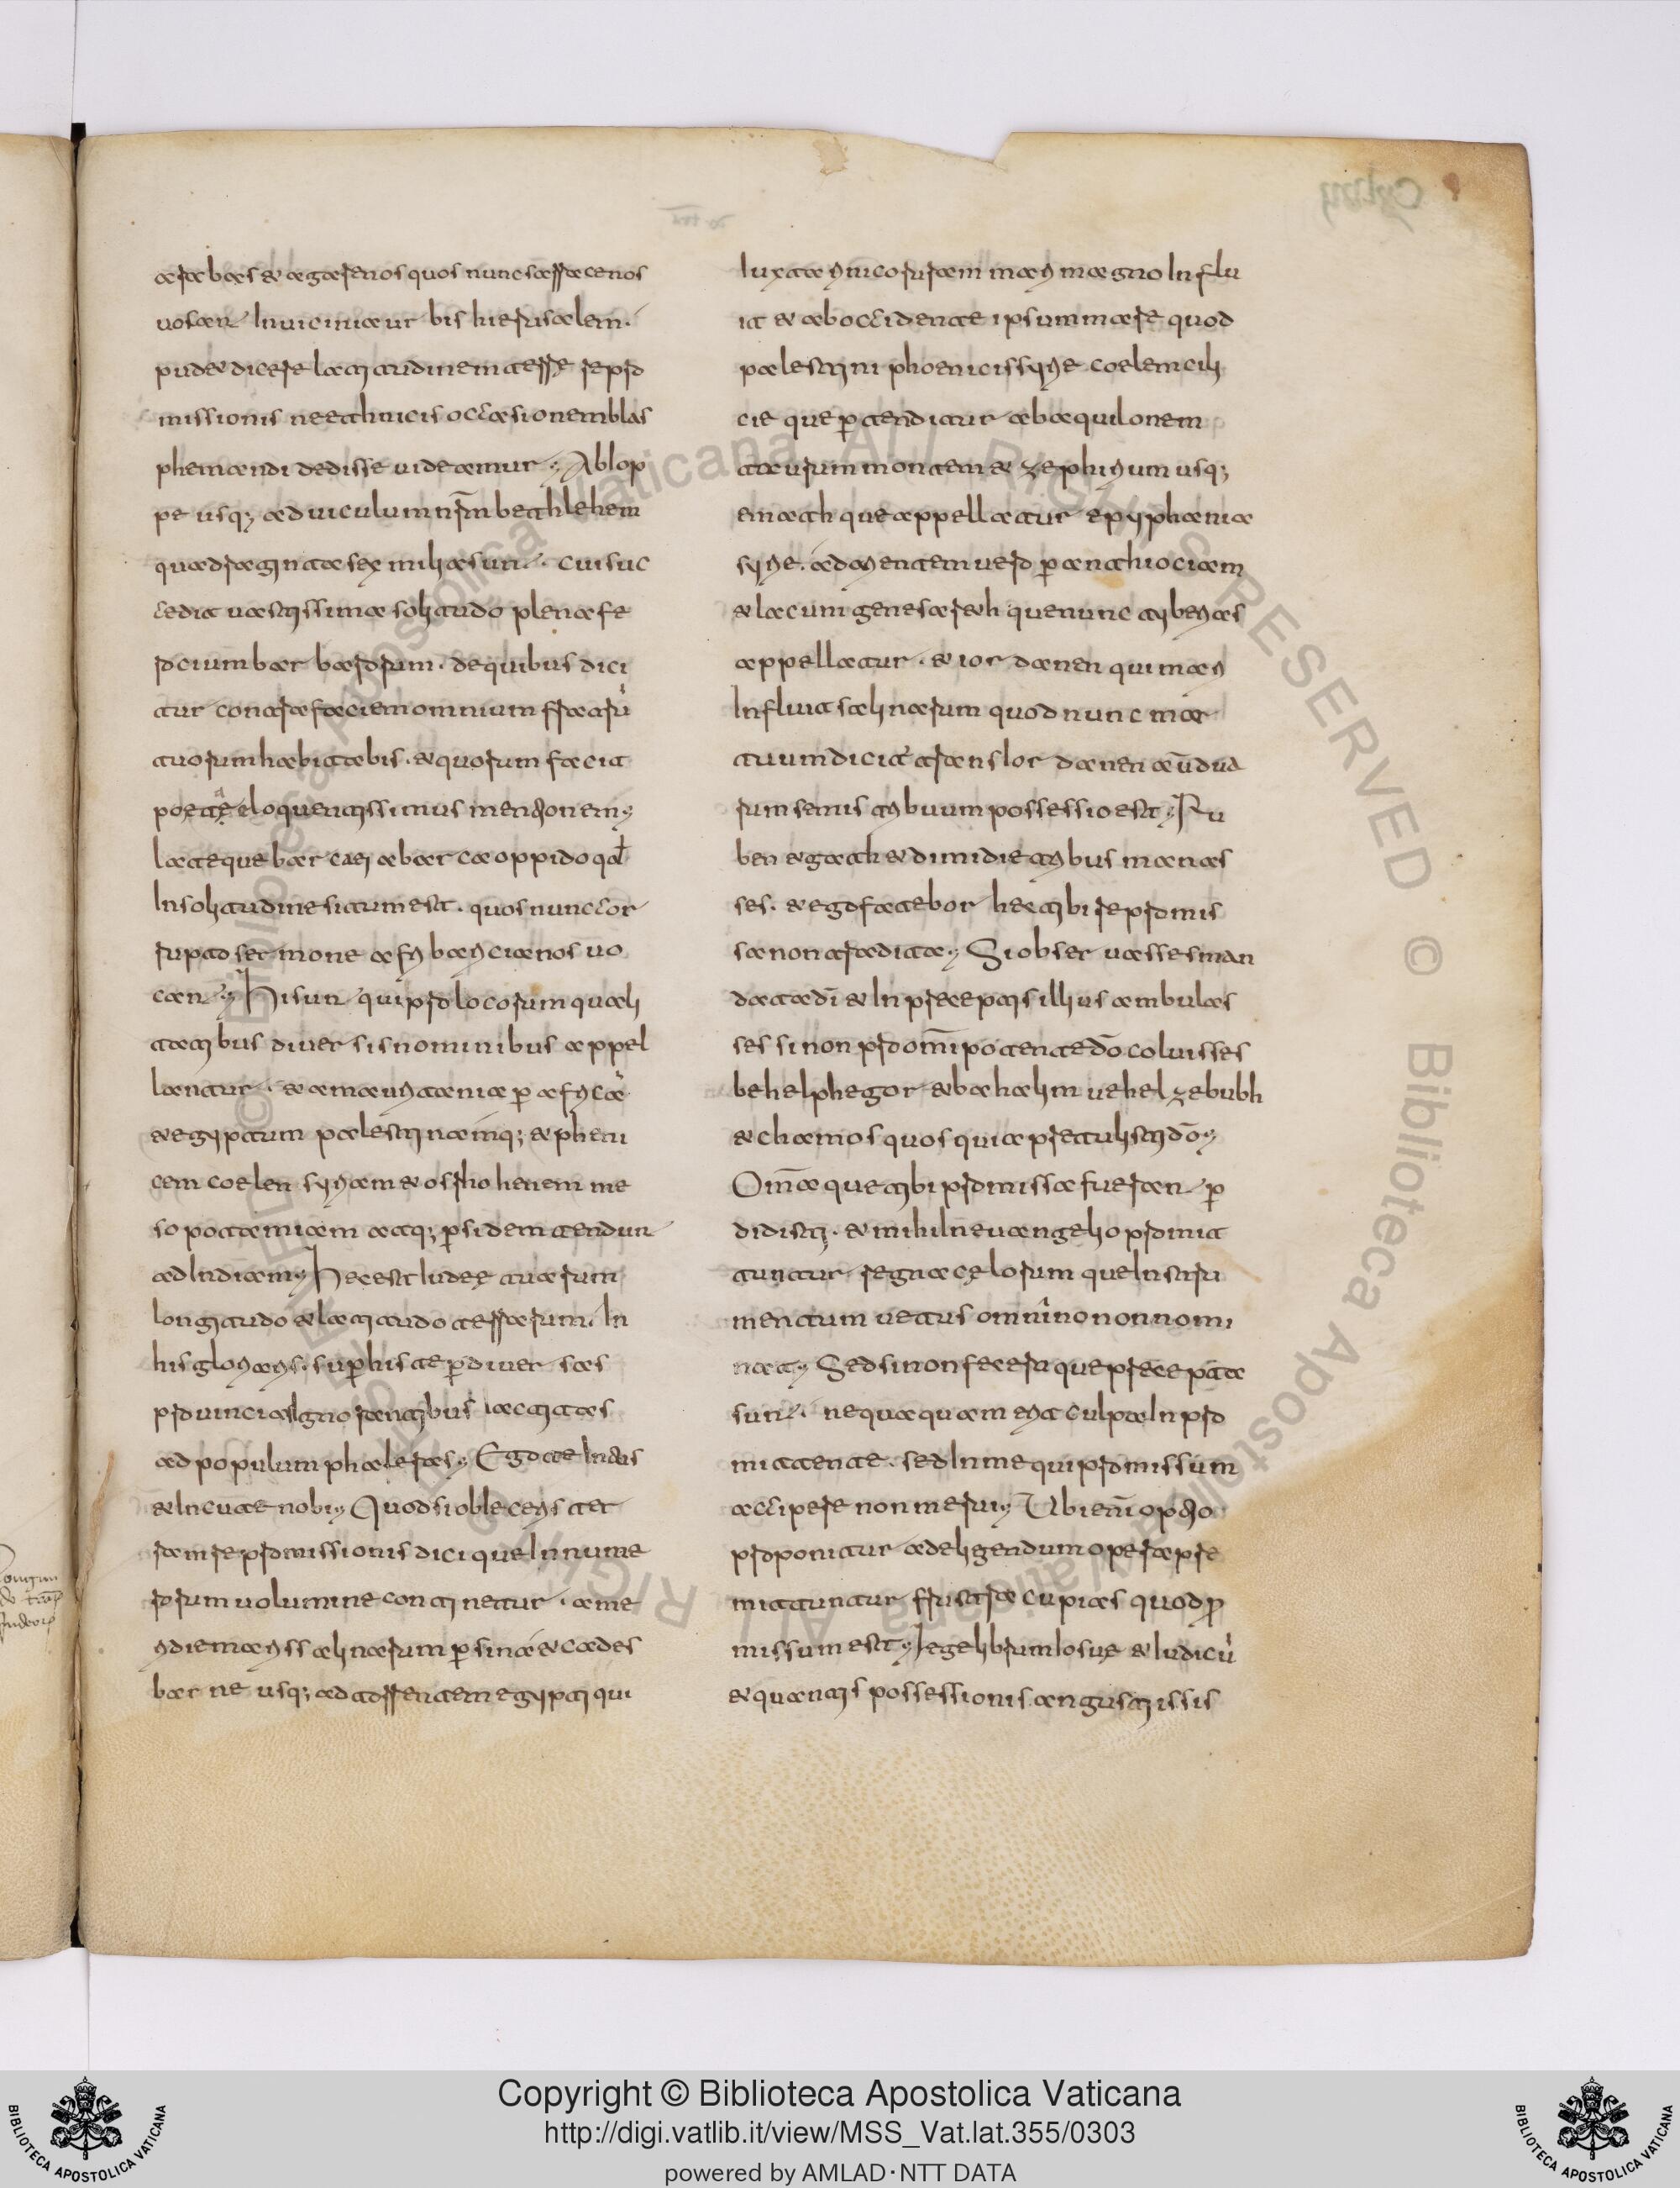 arabas et agarenos quos nunc sarracenos
vocant In vicinia urbis hierusalem.
pudet dicere latitudinem terrę repro
missionis ne ethnicis occasionem blas
phemandi dedisse videamur; Ab Iop
pe usq; ad viculum nr̄m bethlehem
quadraginta sex milia sunt. cui suc
cedit vastissima solitudo plena fe
rocium barbarorum. de quibus dici
tur contra faciem omnium fratrū
tuorum habitabis. et quorum facit
poeta eloquentissimus mentionem;
lateque barcaei a barca oppido qđ
In solitudine situm est. quos nunc cor
rupto sermone afri baricianos vo
cant; Hi sunt qui pro locorum quali
tatibus diversis nominibus appel
lantur. et a mauritania p africā
et egyptum palestinamq; et pheni
cem coelen syriam et osrohenem me
sopotamiam atq; psidem tendunt
ad Indiam; Hec est Iudeę tuarum
longitudo et latitudo terrarum. In
his gloriaris. sup his te p diversas
provincias Ignorantibus iactitas
ad populum phaleras; Ego te Intus
et In cute nobi; Quod si obieceris ter
ram repromissionis dici que In nume
rorum volumine continetur. a me
ridie maris salinarum p sina et cades
barne usq; ad torrentem egypti qui
Iuxta rinicoruram mari magno Influ
it et ab occidente ipsum mare quod
palestini phoenicis syrie coelem cili
cie que ptenditur ab aquilonem
taurum montem et zephirium usq;
emath que appellatur epyphania
syrie. ad orientem vero p anthiociam
et lacum genesareth que nunc tyberias
appellatur. et iordanen qui mari
Influit salinarum quod nunc mor
tuum dicit̄ trans Iordanen aū dua
rum semis tribuum possessio est; Ru
ben et gath et dimidie tribus manas
ses. et ego fatebor hec tibi repromis
sa non tradita; Si observasses man
data dī et In preceptis illius ambulas
ses si non pro omīpotente dō coluisses
behelphegor et bahalim vehelzebubh
et chamos quos quia pretulisti dō;
Omīa que tibi promissa fuerant p
didisti. et mihi In evangelio promit
tuntur regna cęlorum que Instru
mentum vetus omnino non nomi
nat; Sed si non feceru que precepta
sunt. nequaquam erit culpa In pro
mittente. sed In me qui promissum
accipere non merui; Ubi enī optio
proponitur ad eligendum opera pre
mittuntur frustra cupias quod p
missum est; Lege librum Iosue et Iudicū
et quantis possessionis angustiis sis